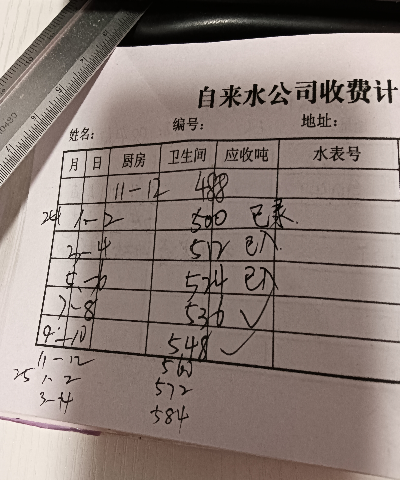 自来水公司收费计
姓名: 编号: 地址:
月 日 厨房 卫生间 应收吨 水表号
11-12 488
24 1-2 500 已录
3-4 512 已入
5-6 524 已入
7-8 536 ✓
9-10 548 ✓
11-12 560
25 1-2 572
3-4 584